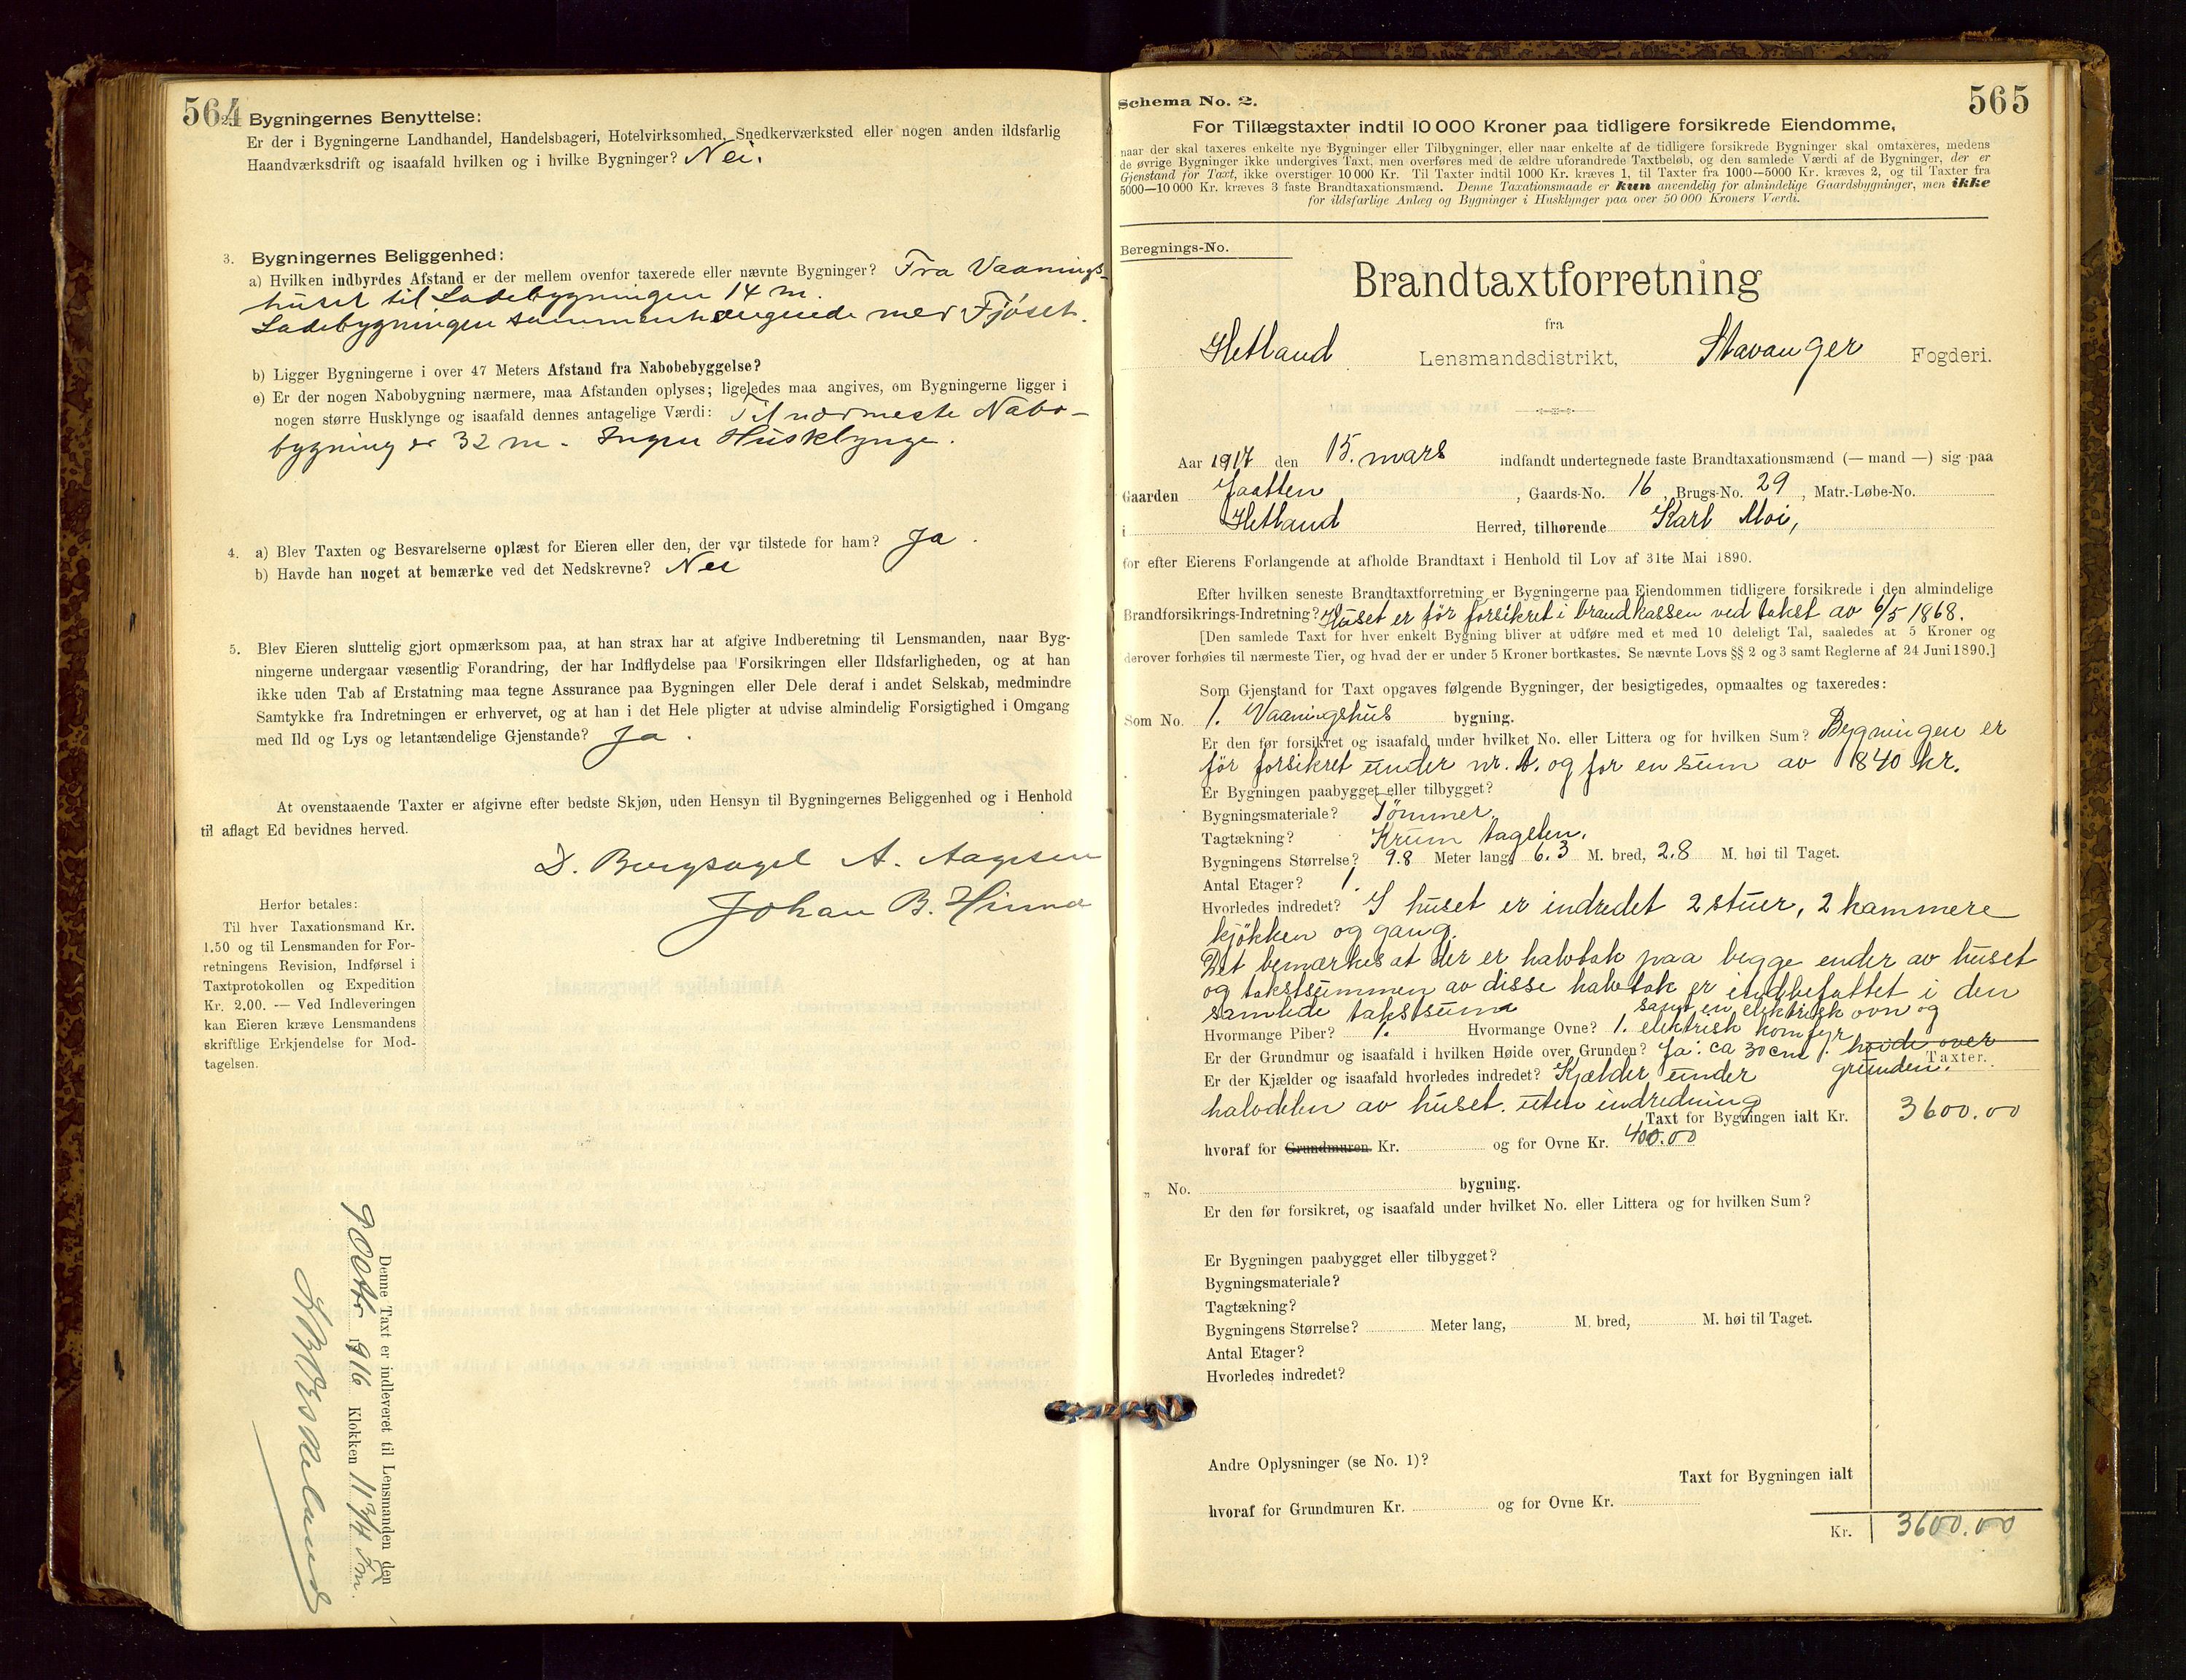 564
Bygningernes Benyttelse:
Er der i Bygningerne Landhandel, Handelsbageri, Hotelvirksomhed, Snedkerværksted eller nogen anden ildsfarlig
Haandværksdrift og isaafald hvilken og i hvilke Bygninger? Nei.
3. Bygningernes Beliggenhed:
a) Hvilken indbyrdes Afstand er der mellem ovenfor taxerede eller nævnte Bygninger? Fra Vaanings-
huset til Ladebygningen 14 m.
Ladebygningen sammenhængende med Fjøset.
b) Ligger Bygningerne i over 47 Meters Afstand fra Nabobebyggelse?
c) Er der nogen Nabobygning nærmere, maa Afstanden oplyses; ligeledes maa angives, om Bygningerne ligger i
nogen større Husklynge og isaafald dennes antagelige Værdi: Til nærmeste Nabo-
bygning er 32 m. Ingen Husklynge.
4. a) Blev Taxten og Besvarelserne oplæst for Eieren eller den, der var tilstede for ham? Ja.
b) Havde han noget at bemærke ved det Nedskrevne? Nei
5. Blev Eieren sluttelig gjort opmærksom paa, at han strax har at afgive Indberetning til Lensmanden, naar Byg-
ningerne undergaar væsentlig Forandring, der har Indflydelse paa Forsikringen eller Ildsfarligheden, og at han
ikke uden Tab af Erstatning maa tegne Assurance paa Bygningen eller Dele deraf i andet Selskab, medmindre
Samtykke fra Indretningen er erhvervet, og at han i det Hele pligter at udvise almindelig Forsigtighed i Omgang
med Ild og Lys og letantændelige Gjenstande? Ja.
At ovenstaaende Taxter er afgivne efter bedste Skjøn, uden Hensyn til Bygningernes Beliggenhed og i Henhold
til aflagt Ed bevidnes herved.
D. Bergsagel A. Aagesen
Johan B. Hinna
Herfor betales:
Til hver Taxationsmand Kr.
1.50 og til Lensmanden for For-
retningens Revision, Indførsel i
Taxtprotokollen og Expedition
Kr. 2.00. — Ved Indleveringen
kan Eieren kræve Lensmandens
skriftlige Erkjendelse for Mod-
tagelsen.
Denne Taxt er indleveret til Lensmanden den
9 Octbr 1916 Klokken 11 3/4 Fm.
565
Schema No. 2.
For Tillægstaxter indtil 10 000 Kroner paa tidligere forsikrede Eiendomme,
naar der skal taxeres enkelte nye Bygninger eller Tilbygninger, eller naar enkelte af de tidligere forsikrede Bygninger skal omtaxeres, medens
de øvrige Bygninger ikke undergives Taxt, men overføres med de ældre uforandrede Taxtbeløb, og den samlede Værdi af de Bygninger, der er
Gjenstand for Taxt, ikke overstiger 10 000 Kr. Til Taxter indtil 1000 Kr. kræves 1, til Taxter fra 1000—5000 Kr. kræves 2, og til Taxter fra
5000—10 000 Kr. kræves 3 faste Brandtaxationsmænd. Denne Taxationsmaade er kun anvendelig for almindelige Gaardsbygninger, men ikke
for ildsfarlige Anlæg og Bygninger i Husklynger paa over 50 000 Kroners Værdi.
Beregnings-No.
Brandtaxtforretning
fra
Hetland Lensmandsdistrikt, Stavanger Fogderi.
Aar 1917 den 15. mars indfandt undertegnede faste Brandtaxationsmænd (— mand —) sig paa
Gaarden Jaatten, Gaards-No. 16, Brugs-No. 29, Matr.-Løbe-No.
i Hetland Herred, tilhørende Karl Moi,
for efter Eierens Forlangende at afholde Brandtaxt i Henhold til Lov af 31te Mai 1890.
Efter hvilken seneste Brandtaxtforretning er Bygningerne paa Eiendommen tidligere forsikrede i den almindelige
Brandforsikrings-Indretning? Huset er før forsikret i brandkassen ved takst av 6/5 1868.
[Den samlede Taxt for hver enkelt Bygning bliver at udføre med et med 10 deleligt Tal, saaledes at 5 Kroner og
derover forhøies til nærmeste Tier, og hvad der er under 5 Kroner bortkastes. Se nævnte Lovs §§ 2 og 3 samt Reglerne af 24 Juni 1890.]
Som Gjenstand for Taxt opgaves følgende Bygninger, der besigtigedes, opmaaltes og taxeredes:
Som No. 1. Vaaningshus bygning.
Er den før forsikret og isaafald under hvilket No. eller Littera og for hvilken Sum? Bygningen er
før forsikret under nr. og for en sum av 840 kr.
Er Bygningen paabygget eller tilbygget?
Bygningsmateriale? Tømmer.
Tagtækning? Krum tagsten.
Bygningens Størrelse? 9.8 Meter lang, 6.3 M. bred, 2.8 M. høi til Taget.
Antal Etager? 1.
Hvorledes indredet? I huset er indredet 2 stuer, 2 kammere
kjøkken og gang.
Det bemærkes at der er halvtak paa begge ender av huset
og takstsummen av disse halvtak er indbefattet i den
samlede takstsum samt en elektrisk ovn og
Hvormange Piber? 1. Hvormange Ovne? 1. elektrisk komfyr
Er der Grundmur og isaafald i hvilken Høide over Grunden? Ja. ca 30 cm. høide over
Taxter.
Er der Kjælder og isaafald hvorledes indredet? Kjælder under grunden.
halvdelen av huset. uten indredning
Taxt for Bygningen ialt Kr. 3600.00
hvoraf for Grundmuren Kr. og for Ovne Kr. 400.00
„ No. bygning.
Er den før forsikret, og isaafald under hvilket No. eller Littera og for hvilken Sum?
Er Bygningen paabygget eller tilbygget?
Bygningsmateriale?
Tagtækning?
Bygningens Størrelse? Meter lang, M. bred, M. høi til Taget.
Antal Etager?
Hvorledes indredet?
Andre Oplysninger (se No. 1)?
Taxt for Bygningen ialt
hvoraf for Grundmuren Kr. og for Ovne Kr.
Kr. 3600.00